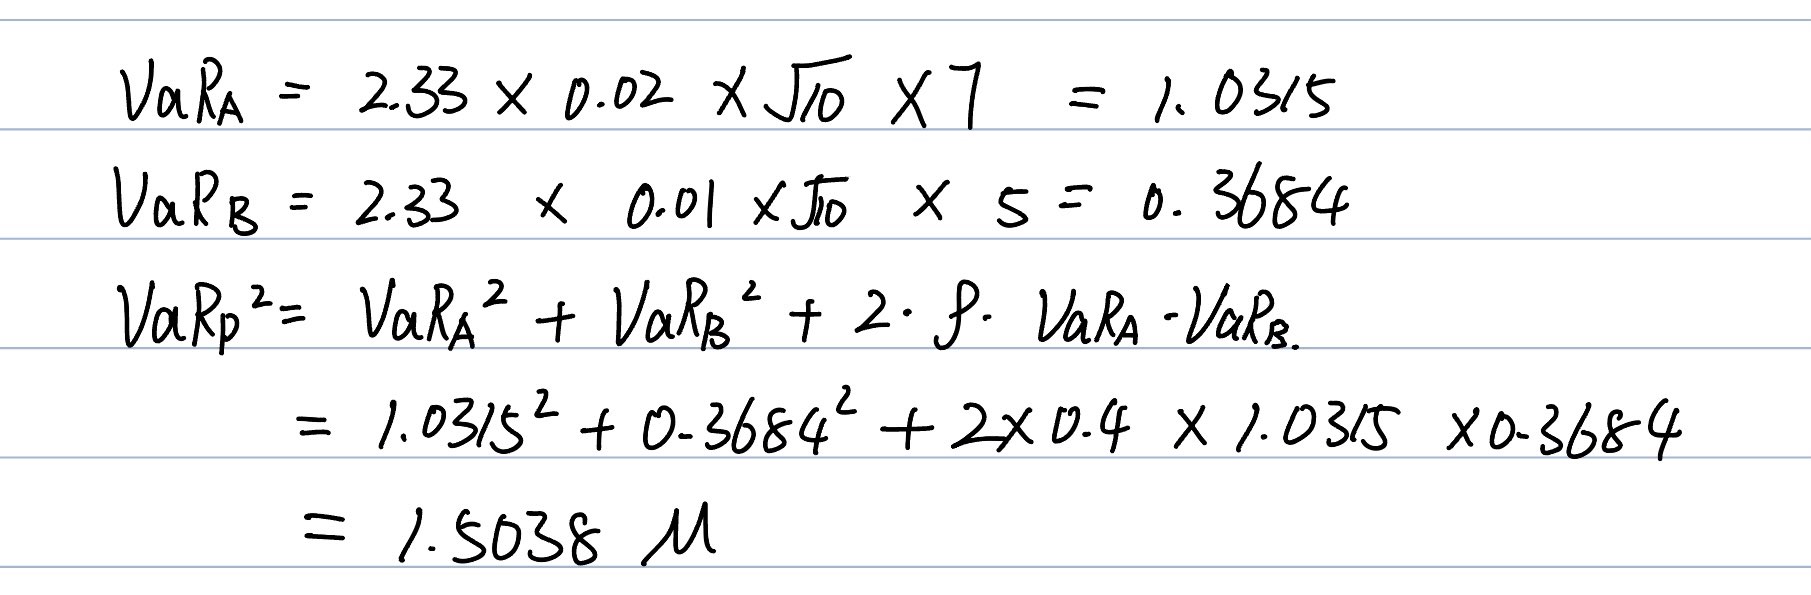 VaR_A = 2.33 × 0.02 × √10 × 7 = 1.0315
VaR_B = 2.33 × 0.01 × √10 × 5 = 0.3684
VaR_p² = VaR_A² + VaR_B² + 2 · ρ · VaR_A · VaR_B.
= 1.0315² + 0.3684² + 2 × 0.4 × 1.0315 × 0.3684
= 1.5038 M